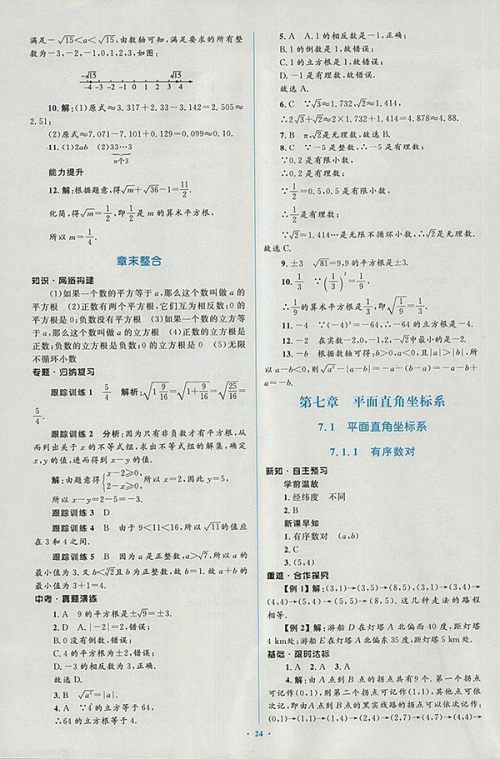 满足-√15<a<√15,由数轴可知,满足要求的所有整
数为-3,-2,-1,0,1,2,3,如图:
-√15 √15
-4 -3 -2 -1 0 1 2 3 4
10.解:(1)原式≈3.317+2.33-3.142=2.505≈
2.51;
(2)原式≈7.071-7.101+0.129=0.099≈0.10.
11.(1)2ab (2)33…3
n个3
能力提升
12.解:根据题意,得√m+√36-1=11/2.
化简,得√m=1/2,即1/2是m的算术平方根,
所以m=1/4.
章末整合
知识·网络构建
(1)如果一个数的平方等于a,那么这个数叫做a的
平方根 (2)正数有两个平方根,它们互为相反数;0的
平方根是0;负数没有平方根 (3)如果一个数的立方等
于a,那么这个数叫做a的立方根 (4)正数的立方根是
正数;负数的立方根是负数;0的立方根是0 (5)无限
不循环小数
专题·归纳复习
跟踪训练1 5/4 解析:√(1 9/16)=√(1+9/16)=√(25/16)=
5/4.
跟踪训练2 分析:因为只有非负数才有平方根,从
而列出关于x的不等式组,求出不等式组的解集,确定
x,y的值,进而得到x-y的值.
解:由题意得{x-2≥0, 2-x≥0,解得x=2,因此y=5.
所以x-y=2-5=-3.
跟踪训练3 D
跟踪训练4 B 由于9<11<16,所以√11的值应
在3和4之间.
跟踪训练5 B 因为a是正整数,a>√7,所以a的
最小值为3,又b<√2且b为正整数,故b=1.故a+b的
最小值为3+1=4.
中考·真题演练
1.A 9的平方根是±√9=±3.
2.D A.|-2|=2,错误;
B.0没有倒数,错误;
C.4的平方根为±2,错误;
D.-3的相反数为3,正确.
故选D.
3.B √a²=|a|.
4.A ∵4的立方等于64,
∴64的立方根等于4.
5.A A.1的相反数是-1,正确;
B.1的倒数是1,故错误;
C.1的立方根是1,故错误;
D.-1是有理数,故错误.
故选A.
6.C ∵√3≈1.732,√2≈1.414,
∴2√3+√2≈2×1.732+1.414=4.878,故选C.
7.B π,√2是无理数,故选B.
8.C ∵-5是整数,∴-5是有理数;
∵0.2是有限小数,
∴0.2是有理数;
∵1/2=0.5,0.5是有限小数,
∴1/2是有理数;
∵√2=1.414…是无限不循环小数,∴√2是无理数.
故选C.
9.±3 √81=9,9的平方根是±3.
10.1/3 ∵(1/3)²=1/9,
∴1/9的算术平方根是1/3,即√(1/9)=1/3.
11.-4 ∵(-4)³=-64,∴-64的立方根是-4.
12.-2 在实数-2,0,-1,2,-√2中最小的是-2.
13.-b 根据数轴可得:b>0,a<0,且|a|>|b|,所
以a-b<0,则√a²-|a-b|=-a-(b-a)=-a-b+
a=-b.
第七章 平面直角坐标系
7.1 平面直角坐标系
7.1.1 有序数对
新知·自主预习
学前温故
1.经纬度 不同
2.B
新课早知
1.有序数对 (a,b)
2.C
3.(5,4)
重难·合作探究
【例1】解:(3,1)→(3,5)→(8,5),(3,1)→(3,4)→
(4,4)→(5,4)→(5,5)→(8,5),这几种走法的路程
相等.
【例2】解:游船B在灯塔A北偏西40度,距灯塔
4km处;游船E在灯塔A北偏东35度,距灯塔5km处.
基础·限时达标
1.A 2.A 3.A
4.解:由A点到B点的拐点共有9个.第一个拐点
可记作(0,1),则第二个拐点可记作(1,1),其他点可依
次记,即由A点到B点的黑实线路的拐点可以依次记作:
(0,1)→(1,1)→(1,2)→(2,4)→(2,7)→(4,7)→(4,4)→
24